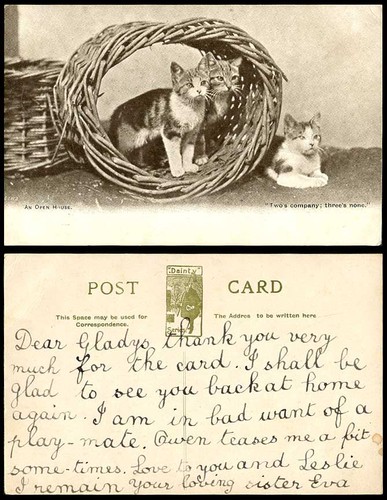 An Open House.
"Two's company; three's none."
POST CARD
"Dainty"
Series
This Space may be used for
Correspondence.
The Addres to be written here
Dear Gladys, thank you very
much for the card. I shall be
glad to see you back at home
again. I am in bad want of a
play-mate. Owen teases me a bit
some-times. Love to you and Leslie
I remain your loving sister Eva